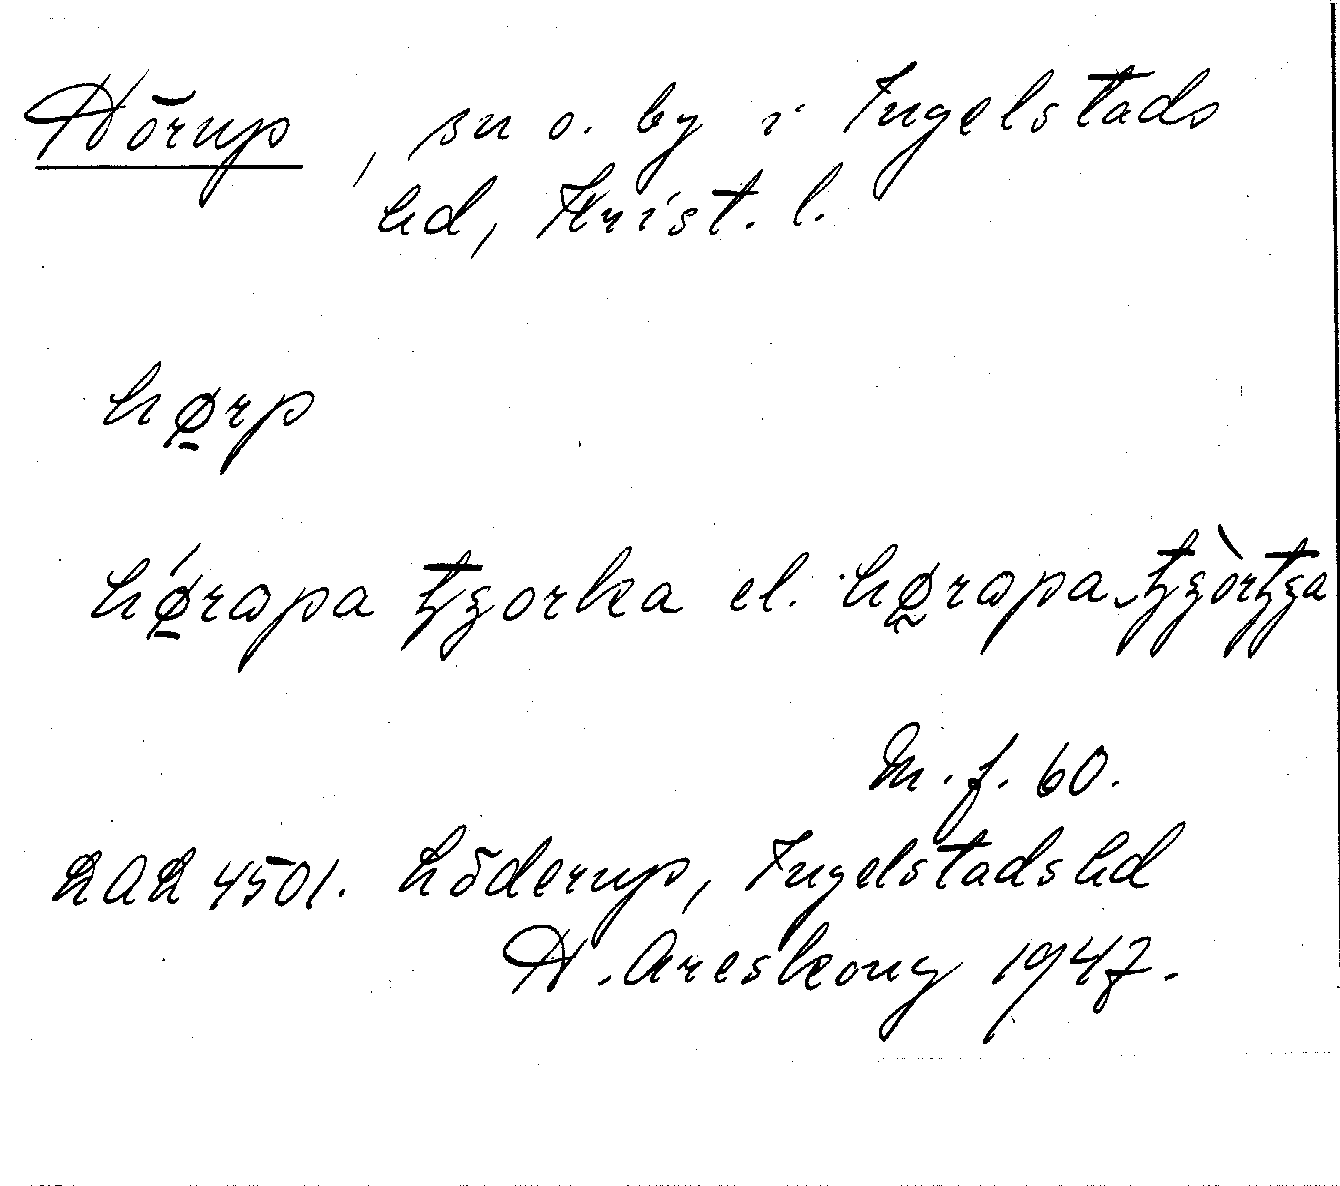 Hörup, sn o. by i Ingelstads
hd, Krist. l.
hø̱rp
hǿ̱rapa tʒorka el. hø̰rapa tʒòrtʒa
M. f. 60.
LAL 4501. Löderup, Ingelstads hd
H. Areskoug 1947.